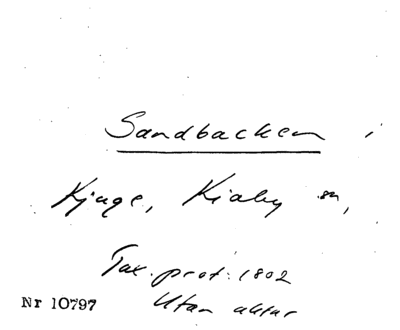 Sandbacken i
Kjuge, Kiaby sn,
Tax. prot. 1802
Utan aktur
Nr 10797